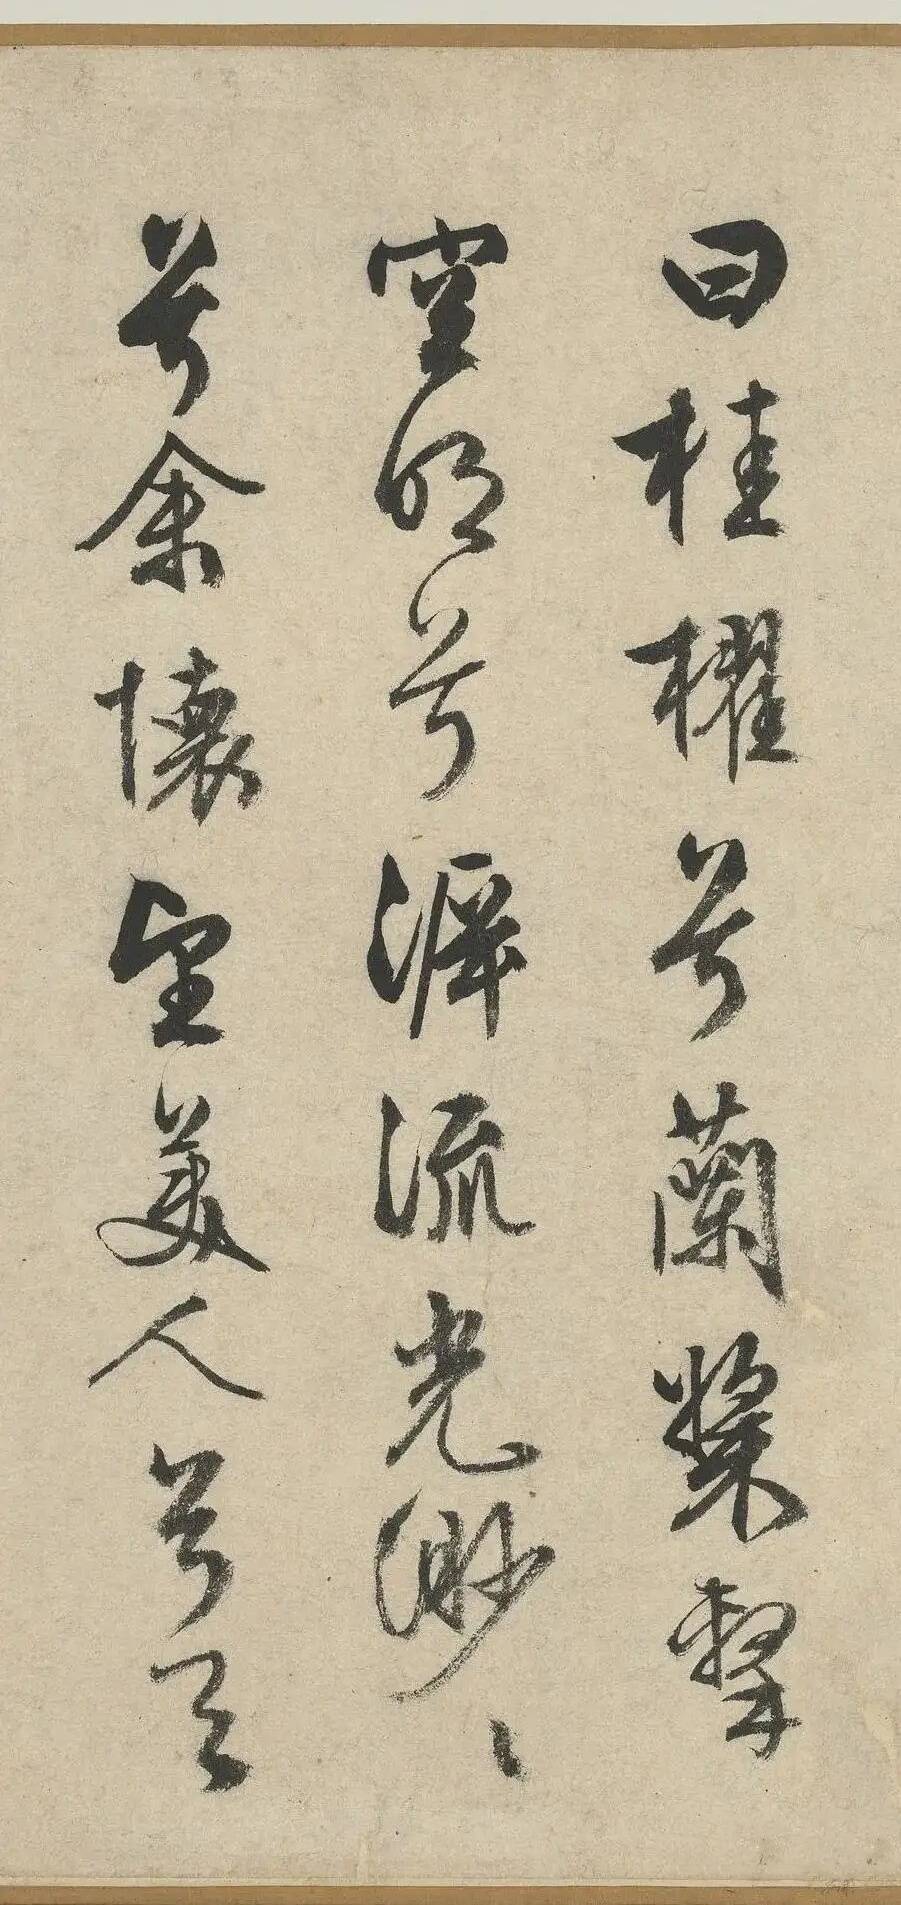 曰桂櫂兮蘭槳擊
空明兮泝流光渺〻
兮余懷望美人兮天